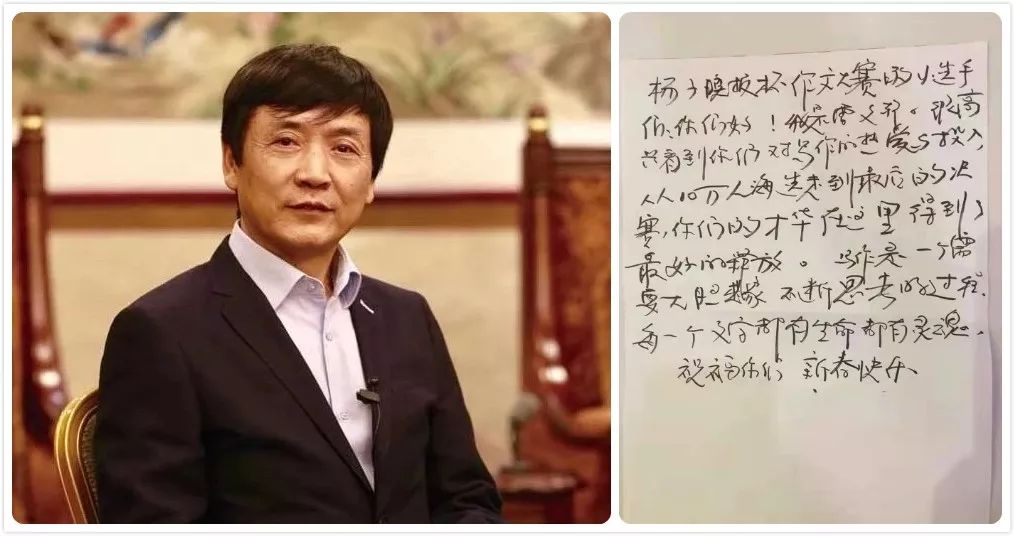 扬子晚报杯作文大赛的小选手
们，你们好！我是曹文轩。很高
兴看到你们对写作的热爱与投入，
从10万人海选来到最后的决
赛，你们的才华在这里得到了
最好的释放。写作是一个需
要大胆想象 不断思考的过程，
每一个文字都有生命都有灵魂。
祝福你们 新春快乐